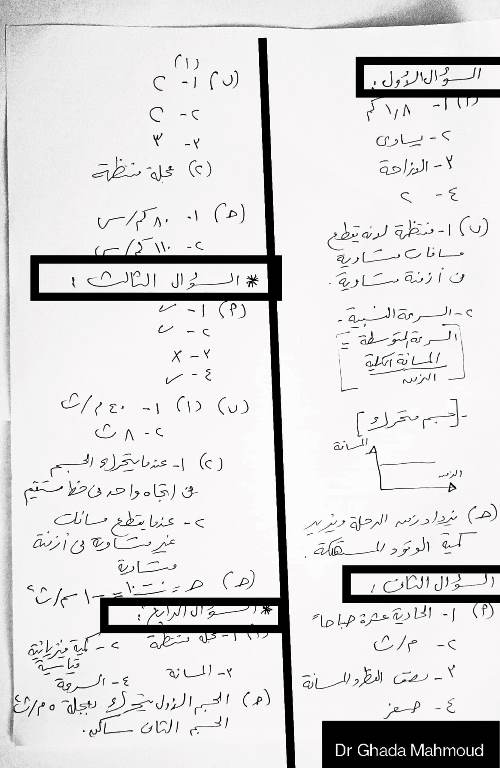 السؤال الأول:
(٢) ١- ١,٨ كم
٢- يساوى
٣- الإزاحة
٤- ٢
(ب) ١- منتظمة لأنه يقطع
مسافات متساوية
فى أزمنة متساوية.
٢- السرعة النسبية.
السرعة المتوسطة =
المسافة الكلية
الزمن
- [جسم متحرك]
المسافة
الزمن
(حـ) يزداد زمن الرحلة ويزيد
كمية الوقود المستهلكة.
السؤال الثانى:
(٢) ١- الحادية عشرة صباحاً
٢- م/ث
٣- نصف القطر والمسافة
٤- صفر
(١)
(ب) ١- ٢
٢- ٢
٣- ٣
(٢) عجلة منتظمة
(حـ) ١- ٨٠ كم/س
٢- ١١٠ كم/س
* السؤال الثالث:
(٢) ١- ✓
٢- ✓
٣- ×
٤- ✓
(ب) (١) ١- ٤٠ م/ث
٢- ٨ ث
(٢) ١- عندما يتحرك الجسم
فى اتجاه واحد فى خط مستقيم
٢- عندما يقطع مسافات
غير متساوية فى أزمنة
متساوية
* السؤال الرابع:
(٢) ١- عجلة منتظمة ٢- كمية فيزيائية
قياسية
٣- المسافة ٤- السرعة
(حـ) الجسم الأول يتحرك بعجلة ٥ م/ث²
الجسم الثانى ساكن.
Dr Ghada Mahmoud